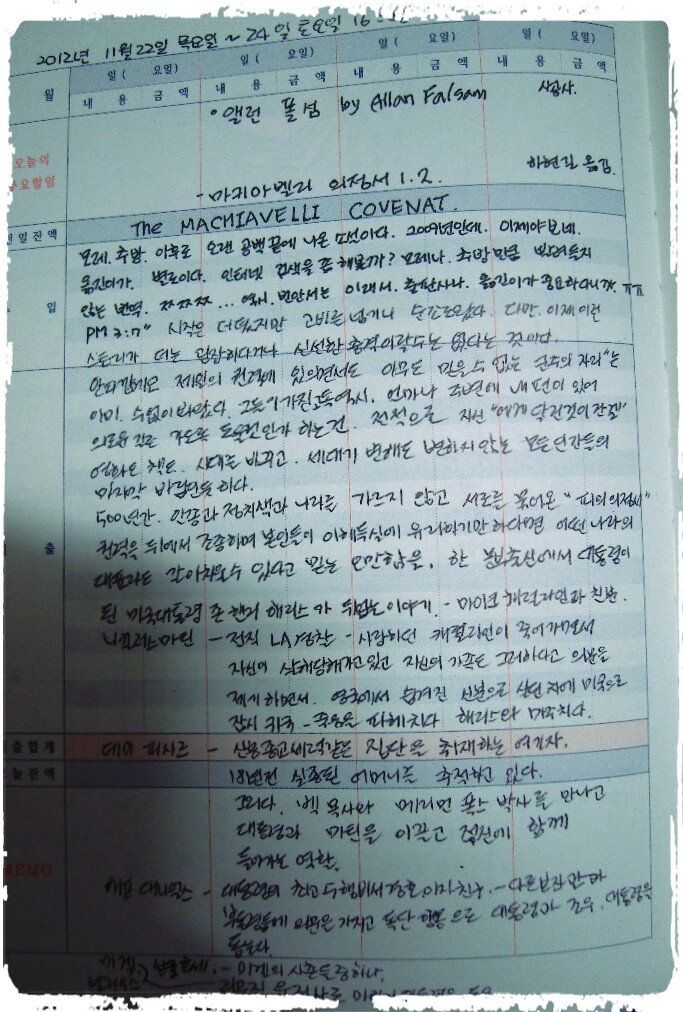 2012년 11월 22일 목요일 ~ 24일 토요일 16:
일 ( 요일) 일 ( 요일) 일 ( 요일) 일 ( 요일)
월 내 용 금 액 내 용 금 액 내 용 금 액 내 용 금 액
• 앨런 폴섬 by Allan Folsam 시공사.
오늘의
주요할일
하현길 옮김.
- 마키아벨리 의정서 1.2.
전일잔액 The MACHIAVELLI COVENAT.
모레. 추방. 이후로 오랜 공백 끝에 나온 소설이다. 2009년인데. 이제야 보네.
옮긴이가. 별로이다. 인터넷 검색을 좀 해볼까? 모레나. 추방 만큼
입 않는 번역. ㅉㅉㅉ... 역시. 번안서는 이래서. 출판사나. 옮긴이가 중요하다니까 ㅠㅠ
PM 3:7" 시작은 더뎠지만 고비를 넘기니 다만. 이제 이런
스토리가 더는 굉장하다거나 신선한 충격이랄수는 없다는 것이다.
안타깝게도 제일의 권력에 있으면서도 아무도 믿을 수 없는 군주의 자리"는
이미. 수없이 봐왔다. 그들이 가진 고독 역시. 언마나 주변에 내 편이 있어
의로운 길로 가도록 도울것인가 하는건. 전적으로 자신"에게 달린것이 관건"
영화도 책도. 시대를 바꾸고. 세대가 변해도 변하지 않는 모든 인간들의
마지막 바람인듯 하다.
500년간. 인종과 정치색과 나라를 가르지 않고 서로를 묶어온 "피의 의정서"
출 권력을 뒤에서 조종하며 본인들의 이해득실에 유리하기만 하다면 어떤 나라의
대표라도 갈아치울수 있다고 믿는 오만함을. 한 농부출신에서 대통령이
된 미국대통령 존 헨리 해리스가 뒤엎는 이야기. - 마이크 해럴라인과 친분.
니콜러스마틴 - 전직 LA경찰 - 사랑하던 캐럴라인이 죽어가면서
자신이 살해당해가고 있고 자신의 가족도 그러하다고 의문을
제기하면서. 영국에서 숨겨진 신분으로 살던차에 미국으로
잠시 귀국 - 죽음을 파헤치다 해리스와 마주치다.
출합계 데미 피시르 - 신흥종교세력같은 집단을 취재하는 여기자.
오늘잔액 18년전 실종된 어머니를 추적하고 있다.
그러다. 벡 목사와 메리먼 폭스 박사를 만나고
대통령과 마틴을 이끌고 접전에 함께
MEMO 들어가는 역할.
해프 대니얼스 - 대통령의 최고 수행비서 경호. 이자 친구. - 다른보좌관과
부통령들에 의문을 가지고 독단 행동으로 대통령과 조우. 대통령을
돕는다.
미겔 - 미겔의 사촌들중하나.